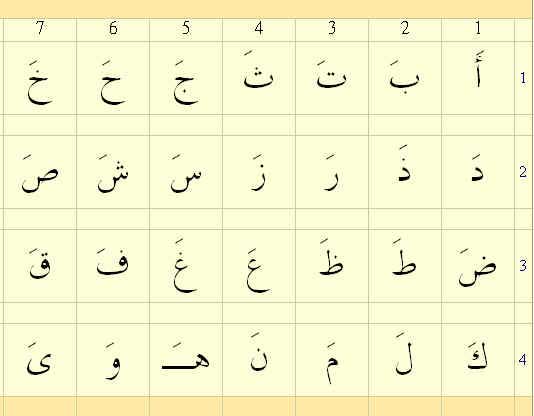 7 6 5 4 3 2 1
أَ بَ تَ ثَ جَ حَ خَ 1
دَ ذَ رَ زَ سَ شَ صَ 2
ضَ طَ ظَ عَ غَ فَ قَ 3
كَ لَ مَ نَ هَـ وَ ىَ 4